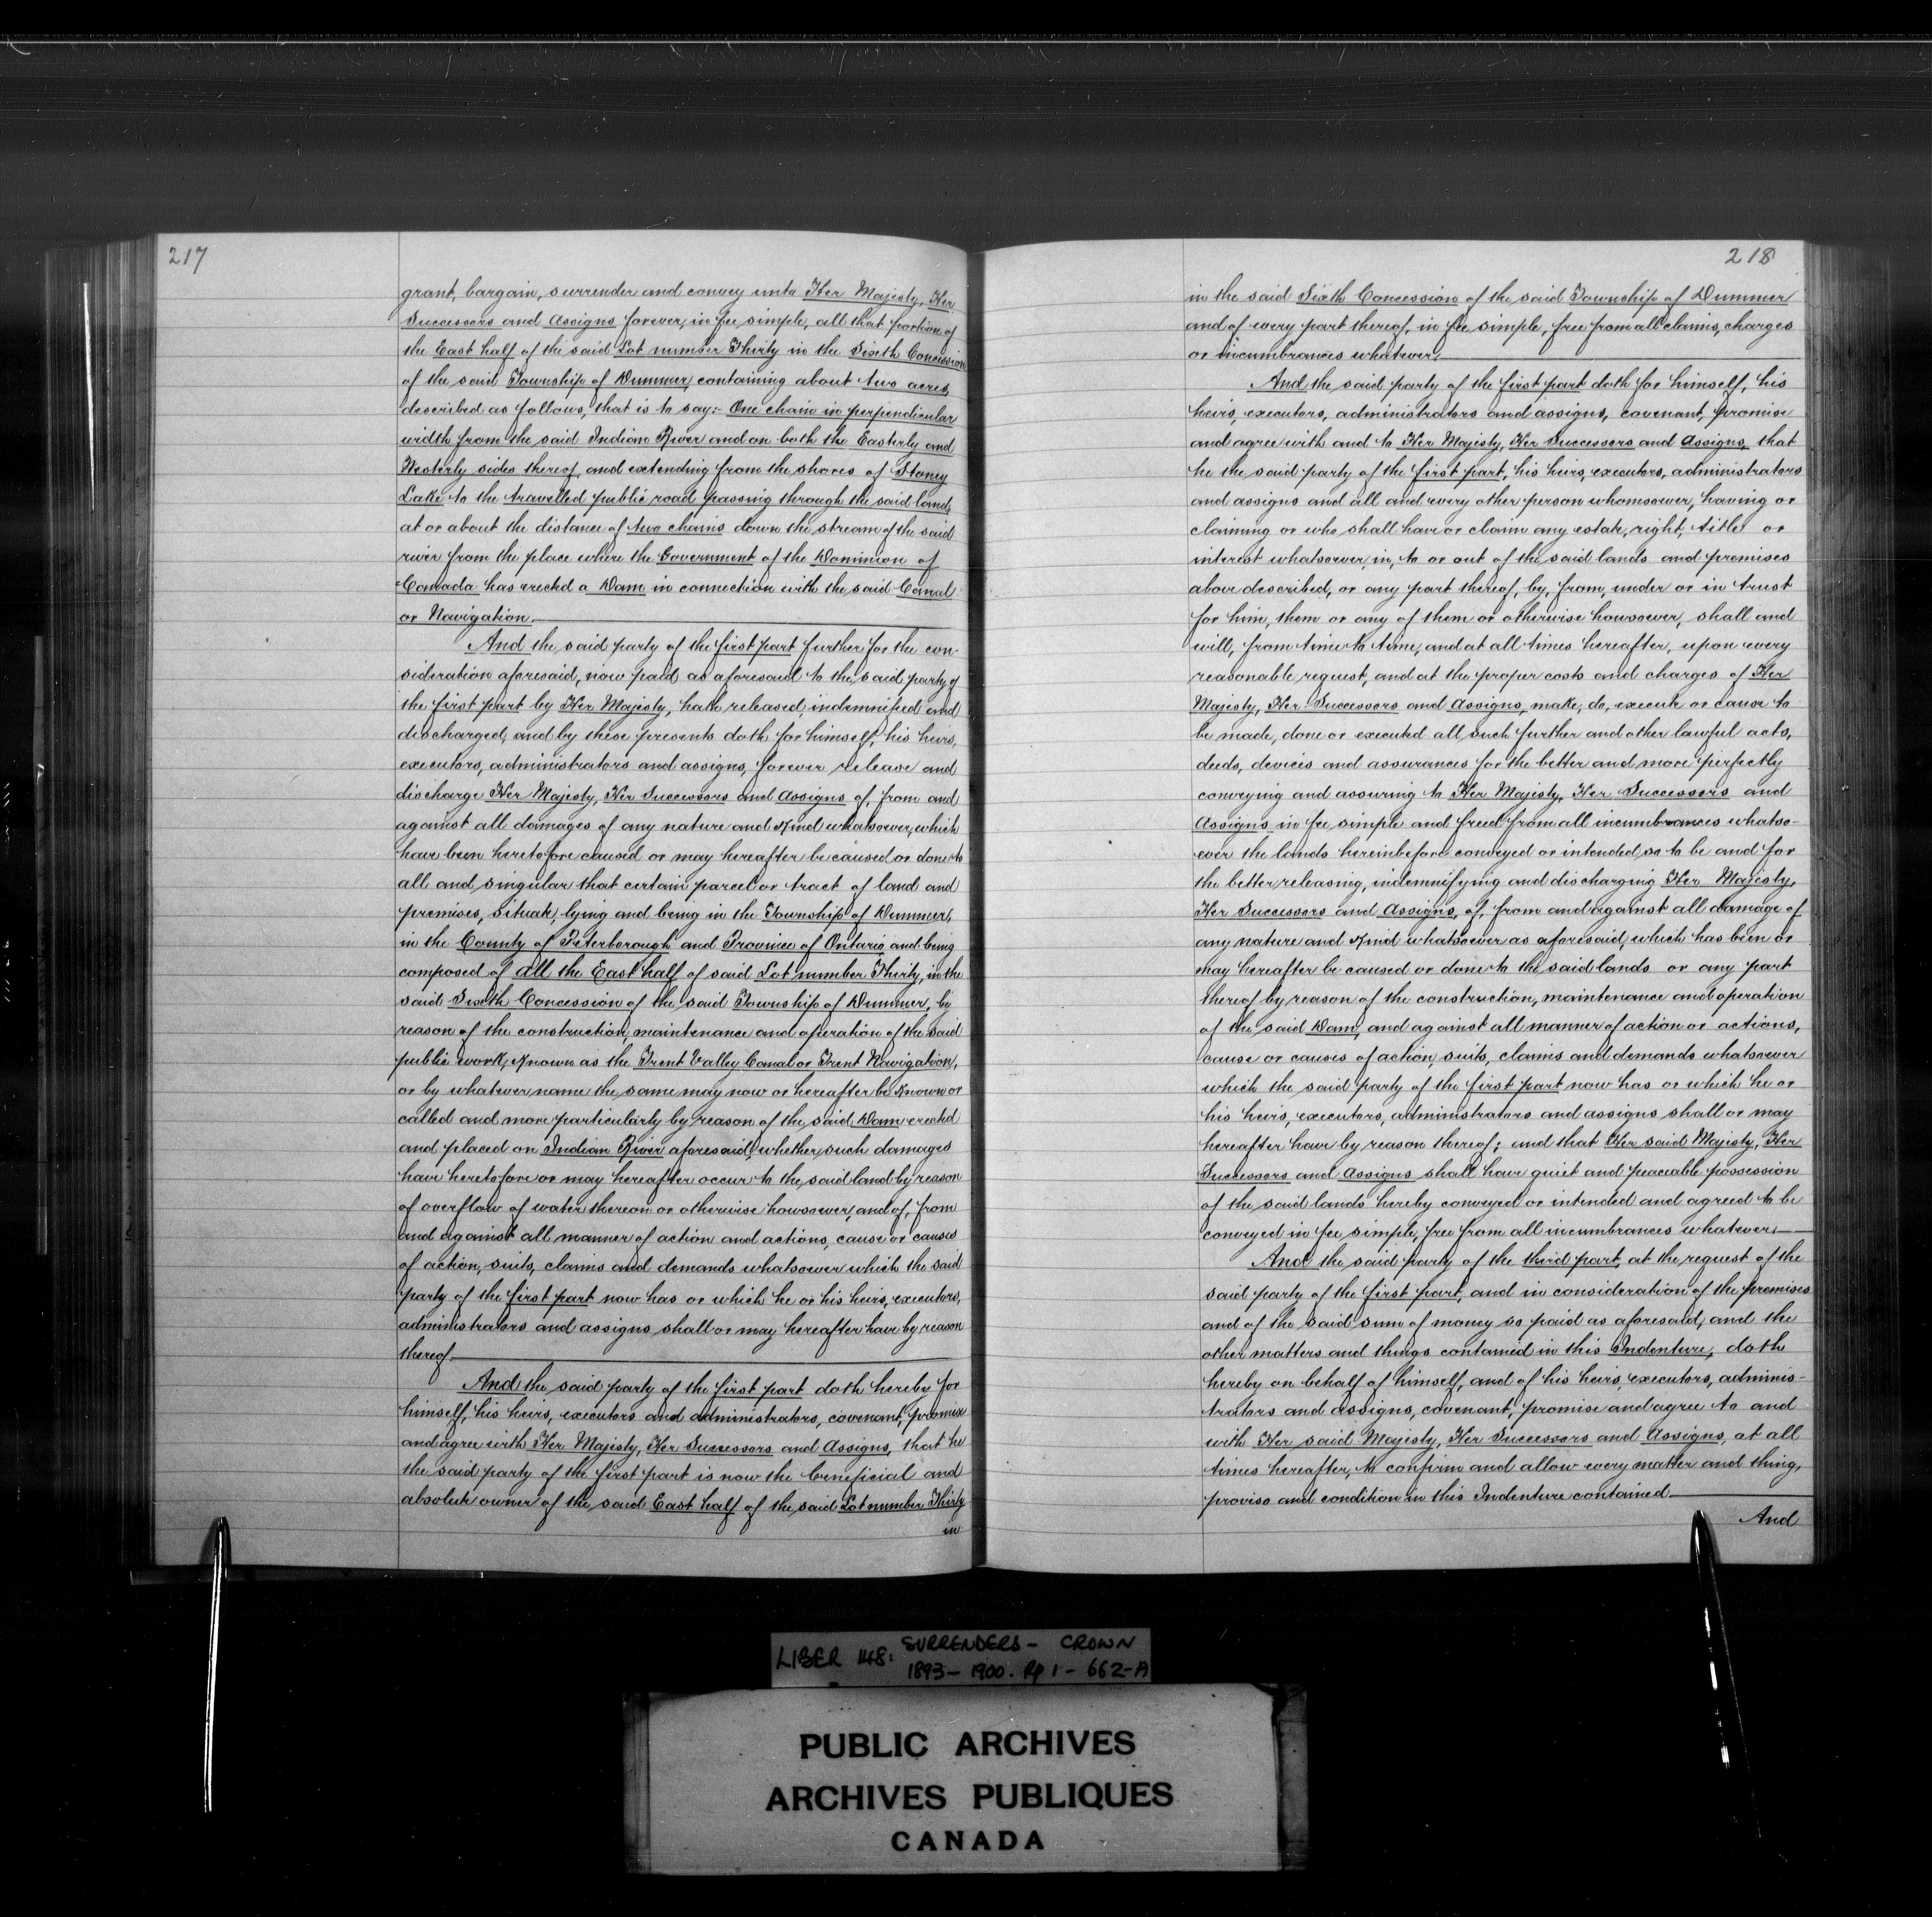 217
grant, bargain, surrender and convey unto Her Majesty, Her
Successors and Assigns forever, in fee simple, all that portion of
the East half of the said Lot number Thirty in the Sixth Concession
of the said Township of Dummer, containing about two acres,
described as follows, that is to say:- One chain in perpendicular
width from the said Indian River and on both the Easterly and
Westerly sides thereof, and extending from the shores of Stoney
Lake to the travelled public road passing through the said land,
at or about the distance of two chains down the stream of the said
river from the place where the Government of the Dominion of
Canada has erected a Dam in connection with the said Canal
or Navigation.
And the said party of the first part further for the con-
sideration aforesaid, now paid as aforesaid to the said party of
the first part by Her Majesty, hath released, indemnified and
discharged, and by these presents doth for himself, his heirs,
executors, administrators and assigns, forever release and
discharge Her Majesty, Her Successors and Assigns of, from and
against all damages of any nature and kind whatsoever, which
have been heretofore caused or may hereafter be caused or done to
all and singular that certain parcel or tract of land and
premises, situate, lying and being in the Township of Dummer,
in the County of Peterborough and Province of Ontario and being
composed of all the East half of said Lot number Thirty, in the
said Sixth Concession of the said Township of Dummer, by
reason of the construction, maintenance and operation of the said
public work, known as the Trent Valley Canal or Trent Navigation,
or by whatever name the same may now or hereafter be known or
called and more particularly by reason of the said Dam erected
and placed on Indian River aforesaid, whether such damages
have heretofore or may hereafter occur to the said land by reason
of overflow of water thereon or otherwise howsoever, and of, from
and against all manner of action and actions, cause or causes
of action, suits, claims and demands whatsoever which the said
party of the first part now has or which he or his heirs, executors,
administrators and assigns shall or may hereafter have by reason
thereof.
And the said party of the first part doth hereby for
himself, his heirs, executors and administrators, covenant, promise
and agree with Her Majesty, Her Successors and Assigns, that he
the said party of the first part is now the beneficial and
absolute owner of the said East half of the said Lot number Thirty
in
218
in the said Sixth Concession of the said Township of Dummer
and of every part thereof, in fee simple, free from all claims, charges
or incumbrances whatever.
And the said party of the first part doth for himself, his
heirs, executors, administrators and assigns, covenant, promise
and agree with and to Her Majesty, Her Successors and Assigns, that
he the said party of the first part, his heirs, executors, administrators
and assigns and all and every other person whomsoever, having or
claiming or who shall have or claim any estate, right, title or
interest whatsoever, in, to or out of the said lands and premises
above described, or any part thereof, by, from, under or in trust
for him, them or any of them or otherwise howsoever, shall and
will, from time to time, and at all times hereafter, upon every
reasonable request, and at the proper costs and charges of Her
Majesty, Her Successors and Assigns, make, do, execute or cause to
be made, done or executed all such further and other lawful acts,
deeds, devices and assurances for the better and more perfectly
conveying and assuring to Her Majesty, Her Successors and
Assigns in fee simple and freed from all incumbrances whatso-
ever the lands hereinbefore conveyed or intended so to be and for
the better releasing, indemnifying and discharging Her Majesty,
Her Successors and Assigns, of, from and against all damage of
any nature and kind whatsoever as aforesaid, which has been or
may hereafter be caused or done to the said lands or any part
thereof by reason of the construction, maintenance and operation
of the said Dam, and against all manner of action or actions,
cause or causes of action, suits, claims and demands whatsoever
which the said party of the first part now has or which he or
his heirs, executors, administrators and assigns shall or may
hereafter have by reason thereof; and that Her said Majesty, Her
Successors and Assigns shall have quiet and peaceable possession
of the said lands hereby conveyed or intended and agreed to be
conveyed in fee simple, free from all incumbrances whatever.
And the said party of the third part, at the request of the
said party of the first part, and in consideration of the premises
and of the said sum of money so paid as aforesaid, and the
other matters and things contained in this Indenture, doth
hereby on behalf of himself, and of his heirs, executors, adminis-
trators and assigns, covenant, promise and agree to and
with Her said Majesty, Her Successors and Assigns, at all
times hereafter, to confirm and allow every matter and thing,
proviso and condition in this Indenture contained.
And
LIBER 148: SURRENDERS - CROWN
1893 - 1900. Pp 1 - 662-A
PUBLIC ARCHIVES
ARCHIVES PUBLIQUES
CANADA